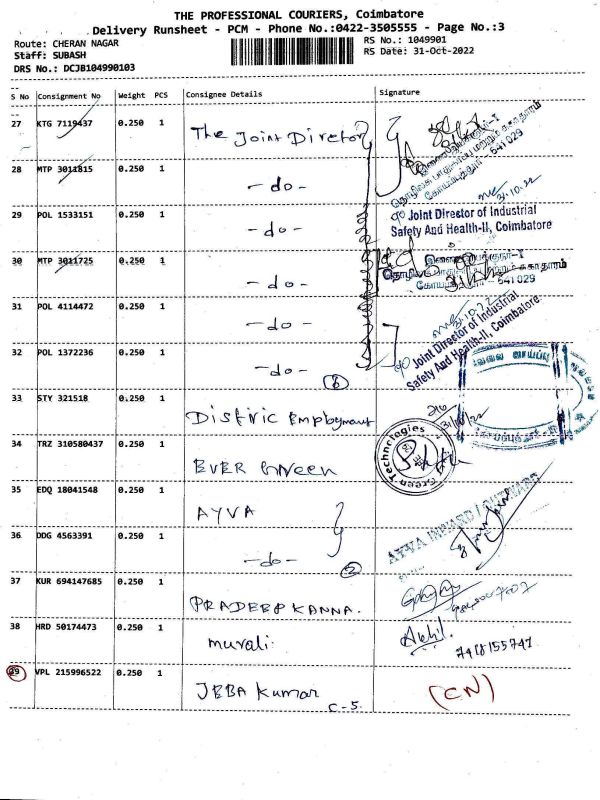 THE PROFESSIONAL COURIERS, Coimbatore
Delivery Runsheet - PCM - Phone No.:0422-3505555 - Page No.:3
Route: CHERAN NAGAR
RS No.: 1049901
Staff: SUBASH
RS Date: 31-Oct-2022
DRS No.: DCJB104990103
S No Consignment No Weight PCS Consignee Details Signature
27 KTG 7119437 0.250 1 The Joint Diretor
28 MTP 3011815 0.250 1 -do-
29 POL 1533151 0.250 1 -do-
Joint Director of Industrial
Safety And Health-II, Coimbatore
30 MTP 3011725 0.250 1 -do-
31 POL 4114472 0.250 1 -do-
32 POL 1372236 0.250 1 -do-
Joint Director of Industrial
Safety And Health-II, Coimbatore
6
33 STY 321518 0.250 1 Distric Employment
34 TRZ 310580437 0.250 1 EVER Green
Green Technologies
35 EDQ 18041548 0.250 1 AYVA
36 DDG 4563391 0.250 1 -do-
2
37 KUR 694147685 0.250 1 PRADEEP KANNA.
38 HRD 50174473 0.250 1 murali
Akhil.
39 VPL 215996522 0.250 1 JEBA Kumar
C-5.
(CN)